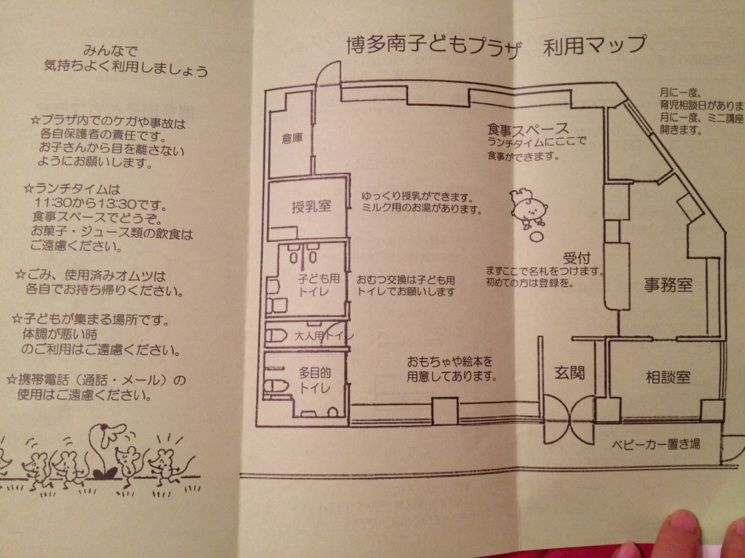 みんなで
気持ちよく利用しましょう
☆プラザ内でのケガや事故は
各自保護者の責任です。
お子さんから目を離さない
ようにお願いします。
☆ランチタイムは
11:30から13:30です。
食事スペースでどうぞ。
お菓子・ジュース類の飲食は
ご遠慮ください。
☆ごみ、使用済みオムツは
各自でお持ち帰りください。
☆子どもが集まる場所です。
体調が悪い時
のご利用はご遠慮ください。
☆携帯電話（通話・メール）の
使用はご遠慮ください。
博多南子どもプラザ 利用マップ
倉庫
食事スペース
ランチタイムにここで
食事ができます。
月に一度、
育児相談日がありま
月に一度、ミニ講座
開きます。
授乳室
ゆっくり授乳ができます。
ミルク用のお湯があります。
受付
まずここで名札をつけます。
初めての方は登録を。
事務室
子ども用
トイレ
おむつ交換は子ども用
トイレでお願いします
大人用トイレ
多目的
トイレ
おもちゃや絵本を
用意してあります。
玄関
相談室
ベビーカー置き場